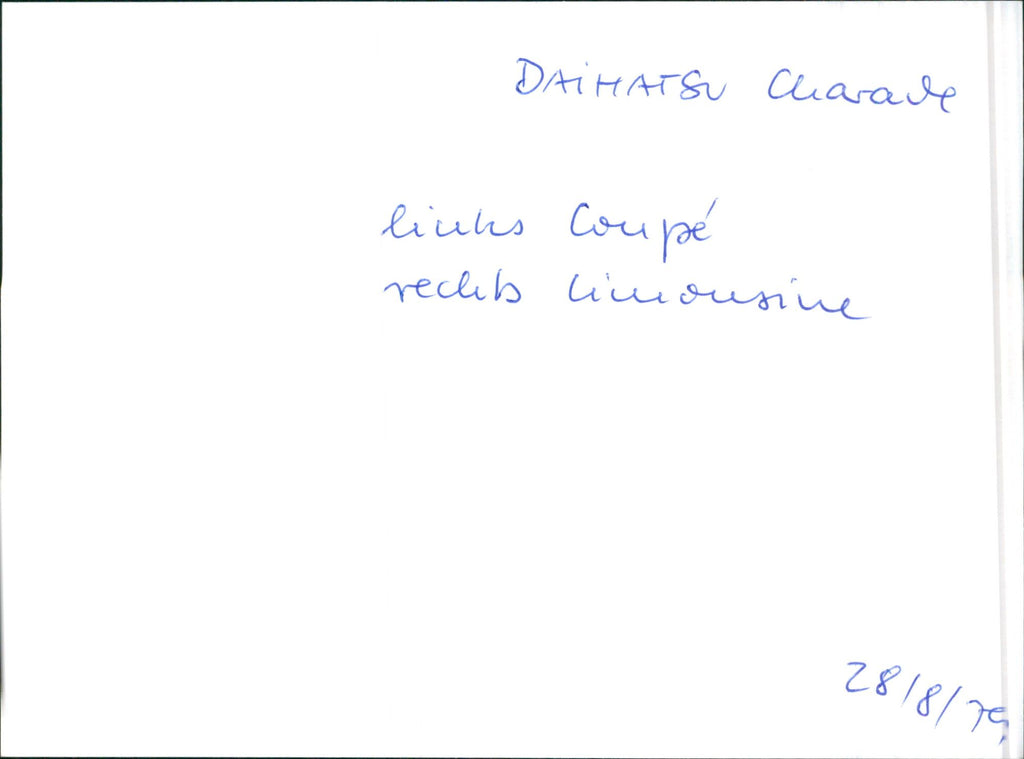 DAiHATSU Charade
links Coupé
rechts Limousine
28/8/79